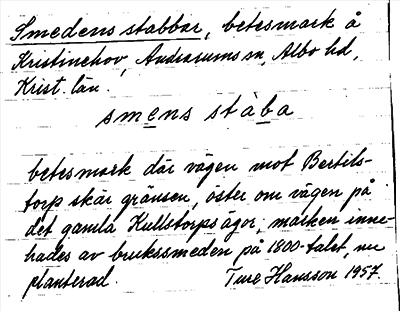 Smedens stabbar, betesmark å
Kristinehov, Andrarums sn, Albo hd,
Krist. län.
smens stàba
betesmark där vägen mot Bertils-
torp skär gränsen, öster om vägen på
det gamla Kullstorps ägor, marken inne-
hades av brukssmeden på 1800-talet, nu
planterad. Ture Hansson 1957.